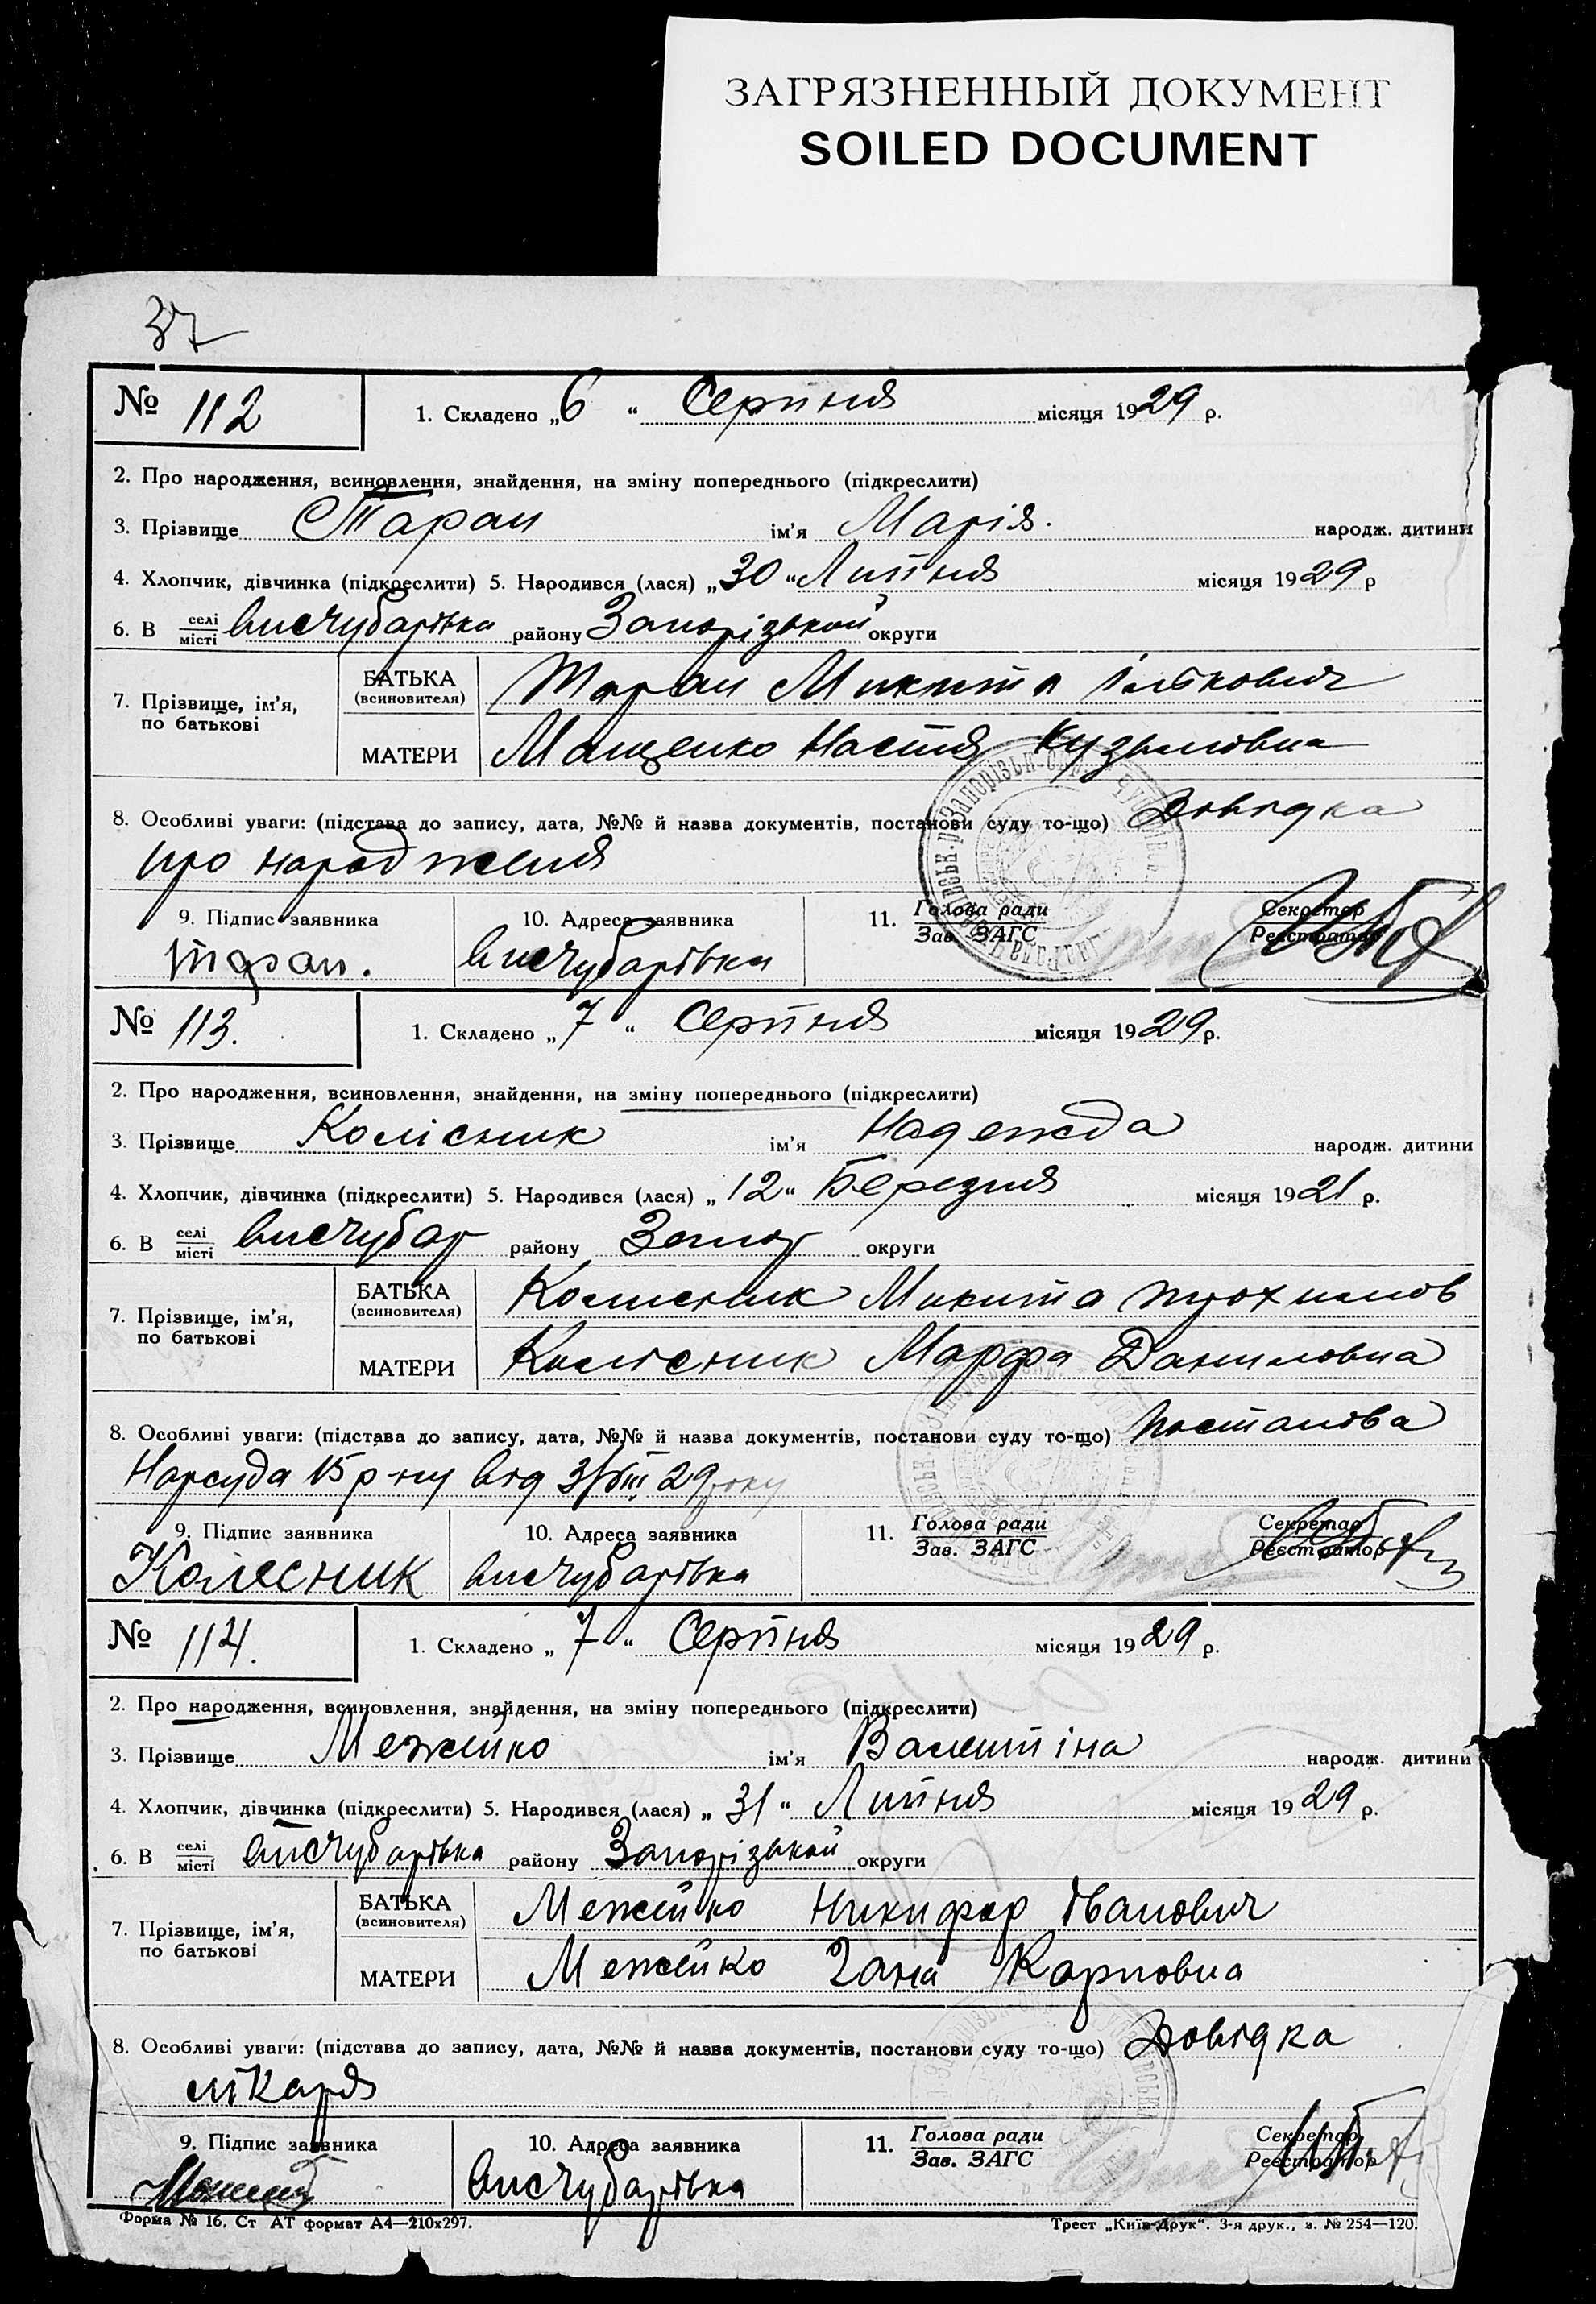 ЗАГРЯЗНЕННЫЙ ДОКУМЕНТ
SOILED DOCUMENT
37
№ 112 1. Складено „6“ Серпня місяця 1929 р.
2. Про народження, всиновлення, знайдення, на зміну попереднього (підкреслити)
3. Прізвище Таран ім'я Марія. народж. дитини
4. Хлопчик, дівчинка (підкреслити) 5. Народився (лася) „30“ Липня місяця 1929 р
6. В селі місті Висчубарівка району Запорізькой округи
7. Прізвище, ім'я, по батькові БАТЬКА (всиновителя) Таран Микита
МАТЕРИ Мащенко Настя Кузьмовна
8. Особливі уваги: (підстава до запису, дата, №№ й назва документів, постанови суду то-що) Довідка
про народження
9. Підпис заявника 10. Адреса заявника 11. Голова ради Зав. ЗАГС Секретар Реєстратор
Таран. Висчубарівка
№ 113. 1. Складено „7“ Серпня місяця 1929 р.
2. Про народження, всиновлення, знайдення, на зміну попереднього (підкреслити)
3. Прізвище Колісник ім'я Надежда народж. дитини
4. Хлопчик, дівчинка (підкреслити) 5. Народився (лася) „12“ Березня місяця 1921 р.
6. В селі місті Висчубар району Запор округи
7. Прізвище, ім'я, по батькові БАТЬКА (всиновителя) Колисник Микита
МАТЕРИ Колісник Марфа Даниловна
8. Особливі уваги: (підстава до запису, дата, №№ й назва документів, постанови суду то-що) Постанова
Нарсуда 15 р-ну від 3/VIII 29 року
9. Підпис заявника 10. Адреса заявника 11. Голова ради Зав. ЗАГС Секретар Реєстратор
Колесник Висчубарівка
№ 114. 1. Складено „7“ Серпня місяця 1929 р.
2. Про народження, всиновлення, знайдення, на зміну попереднього (підкреслити)
3. Прізвище Межейко ім'я Валентіна народж. дитини
4. Хлопчик, дівчинка (підкреслити) 5. Народився (лася) „31“ Липня місяця 1929 р.
6. В селі місті Висчубарівка району Запорізькой округи
7. Прізвище, ім'я, по батькові БАТЬКА (всиновителя) Межейко Никифор Іванович
МАТЕРИ Межейко Гана Карповна
8. Особливі уваги: (підстава до запису, дата, №№ й назва документів, постанови суду то-що) Довідка
лікаря
9. Підпис заявника 10. Адреса заявника 11. Голова ради Зав. ЗАГС Секретар Реєстратор
Висчубарівка
Форма № 16. Ст АТ формат А4—210х297. Трест „Київ-Друк“. 3-я друк., з. № 254—120.